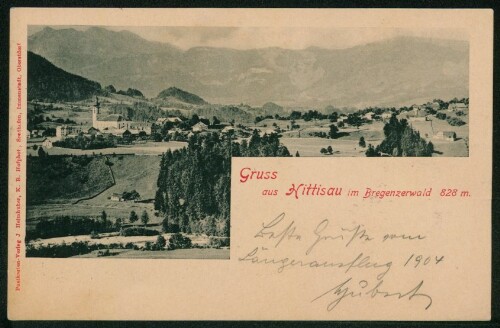 Gruss
aus Hittisau im Bregenzerwald 828 m.
Beste Grüße vom
Sängerausflug 1904
Hubert
Postkarten-Verlag J. Heimhuber, K. B. Hofphot., Sonthofen, Immenstadt, Oberstdorf